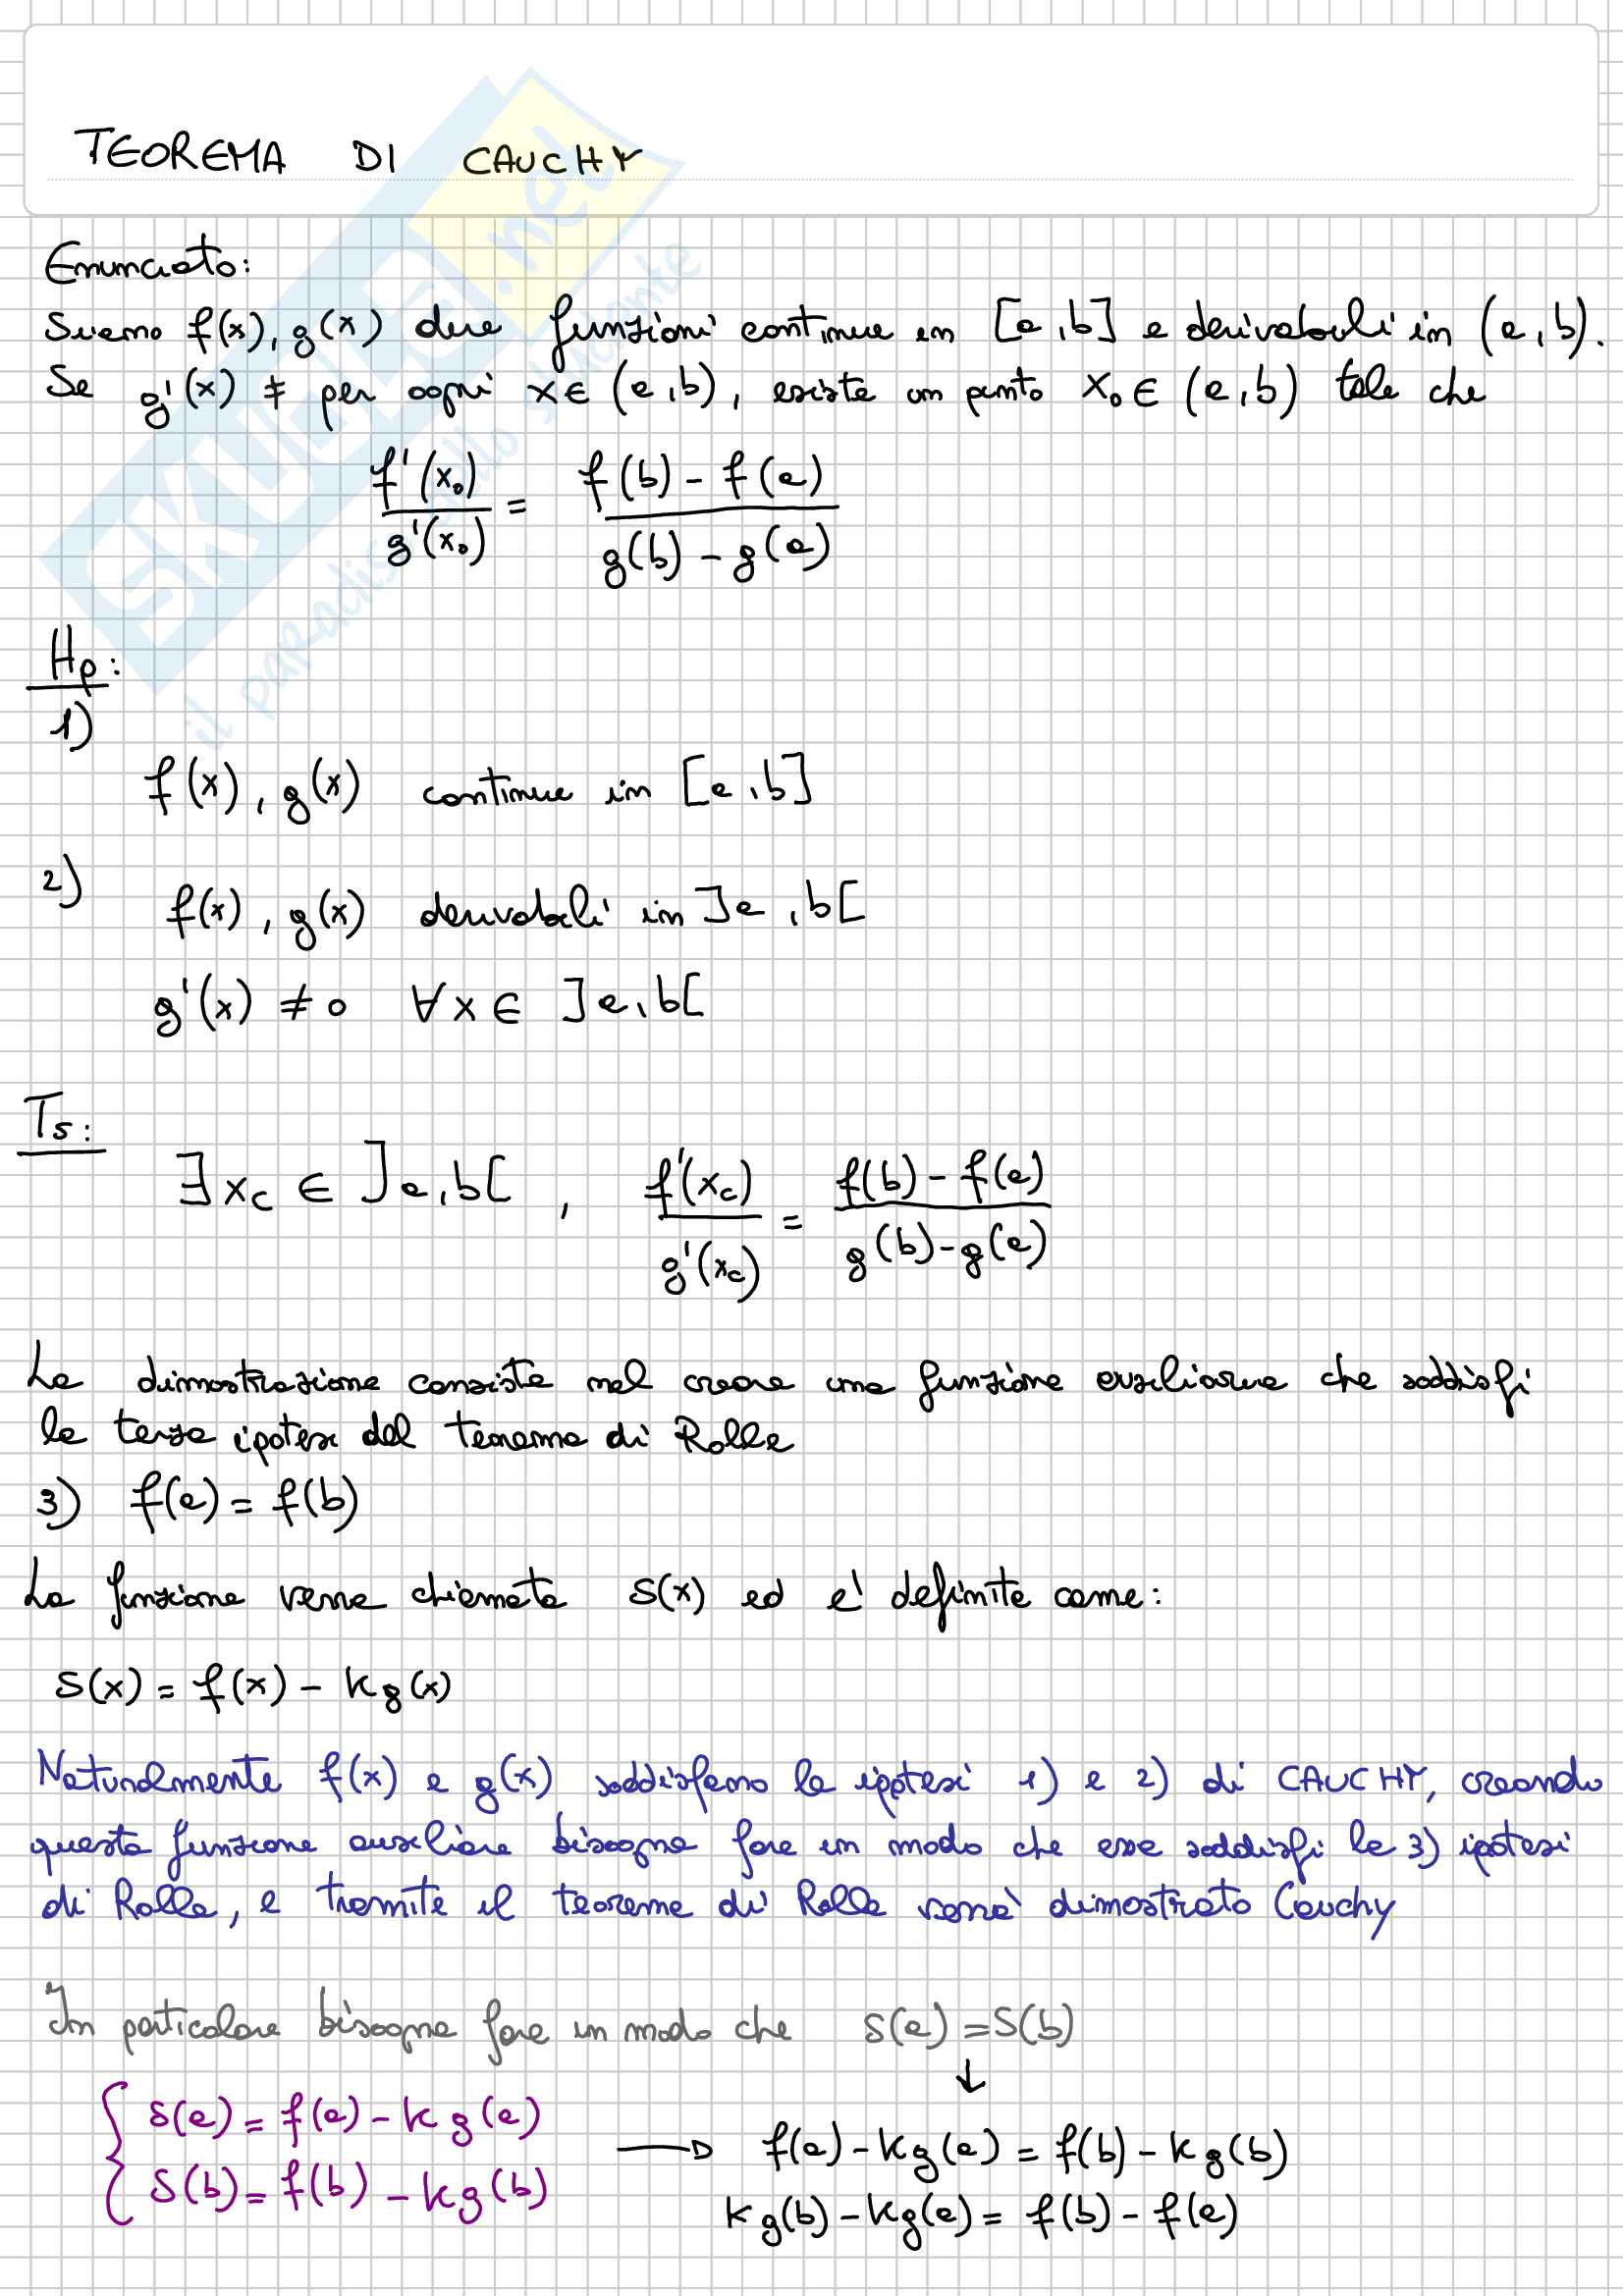 TEOREMA DI CAUCHY
Enunciato:
Siano f(x), g(x) due funzioni continue in [a,b] e derivabili in (a,b).
Se g'(x) ≠ per ogni x∈(a,b), esiste un punto x₀∈(a,b) tale che
f'(x₀)/g'(x₀) = (f(b)-f(a))/(g(b)-g(a))
Hp:
1)
f(x), g(x) continue in [a,b]
2)
f(x), g(x) derivabili in ]a,b[
g'(x) ≠ 0 ∀x∈ ]a,b[
Ts:
∃x_c ∈ ]a,b[ , f'(x_c)/g'(x_c) = (f(b)-f(a))/(g(b)-g(a))
La dimostrazione consiste nel creare una funzione ausiliaria che soddisfi
la terza ipotesi del teorema di Rolle
3) f(a) = f(b)
La funzione verra chiamata S(x) ed e' definita come:
S(x) = f(x) - Kg(x)
Naturalmente f(x) e g(x) soddisfano le ipotesi 1) e 2) di CAUCHY, creando
questa funzione ausiliare bisogna fare in modo che essa soddisfi la 3) ipotesi
di Rolle, e tramite il teorema di Rolle verra' dimostrato Cauchy
In particolare bisogna fare in modo che S(a) = S(b)
↓
{ S(a) = f(a) - Kg(a)
S(b) = f(b) - Kg(b)
→ f(a) - Kg(a) = f(b) - Kg(b)
Kg(b) - Kg(a) = f(b) - f(a)
SKUOLA.net
il paradiso dello studente